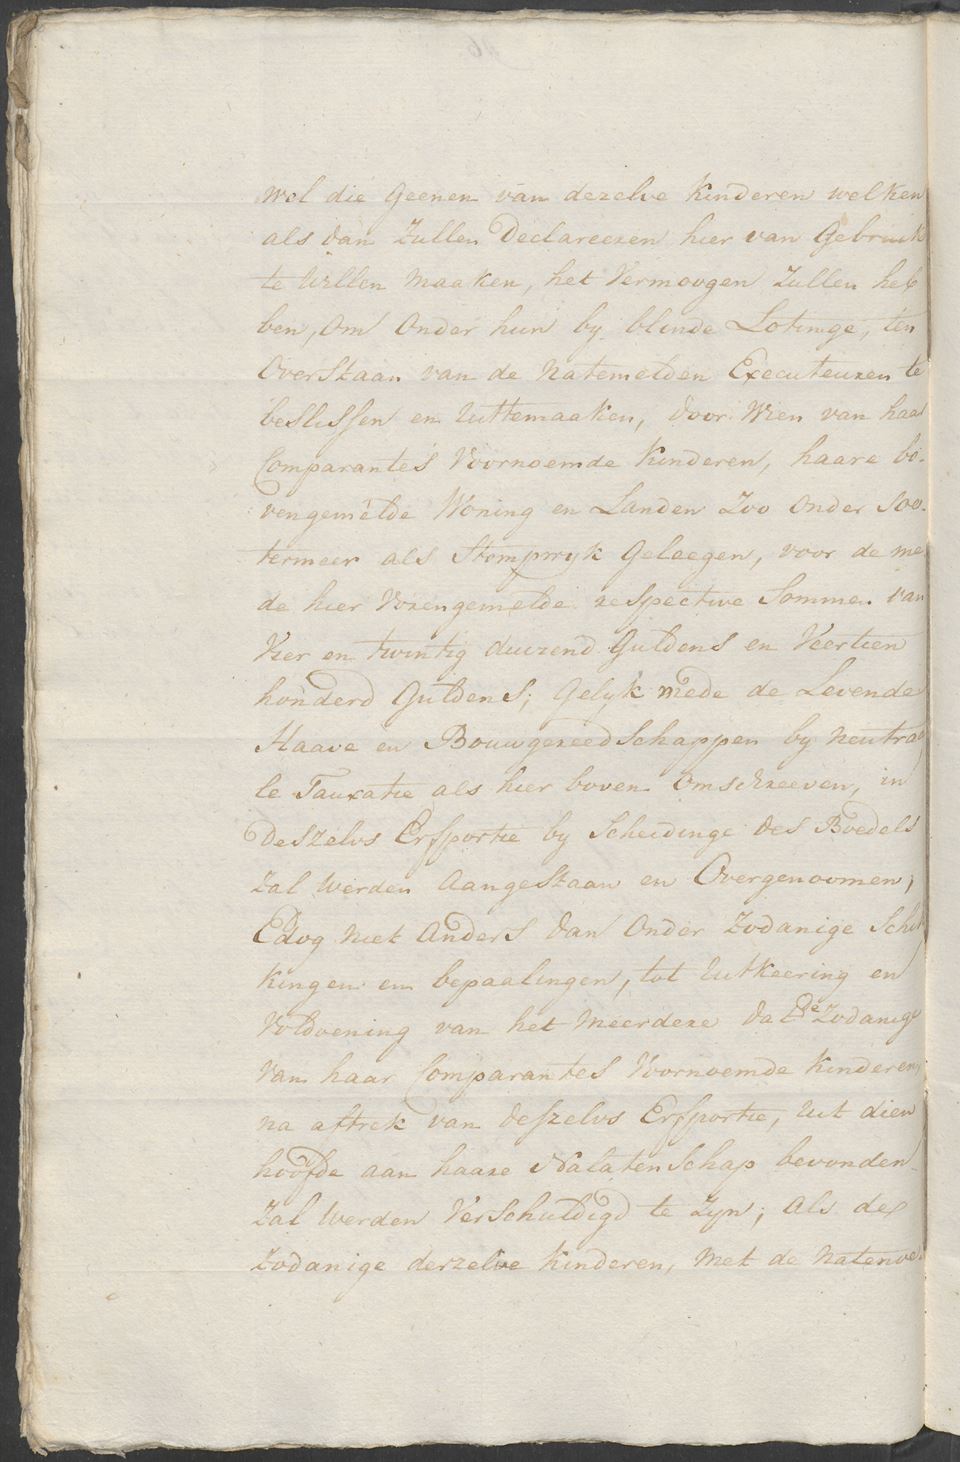 wel die Geenen van dezelve Kinderen welken
als dan Zullen Declareeren hier van Gebruik
te Willen maaken, het Vermoogen Zullen heb
ben, om Onder hun by blinde Lotinge, ten
Overstaan van de Natemelden Executeuren te
beslissen en Uittemaaken, door Wien van haar
Comparantes Voornoemde Kinderen, haare bo-
vengemelde Woning en Landen Zoo Onder Soo-
termeer als Stompwyk Geleegen, voor de me
de hier Vorengemelde respective Sommen van
Vier en twintig duizend Guldens en Veertien
honderd Guldens; Gelyk mede de Levende
Haave en Bouwgereedschappen by Neutra
le Tauxatie als hier boven Omschreeven, in
Deszelvs Erfportie by Scheidinge des Boedels
Zal Werden Aangestaan en Overgenoomen;
Edog Niet Anders dan Onder Zodanige Schik
kingen en bepaalingen, tot Uitkeering en
Voldoening van het Meerdere dat De Zodanige
van haar Comparantes Voornoemde Kinderen,
na aftrek van deszelvs Erfportie, Uit dien
hoofde aan haare Nalatenschap bevonden
Zal Werden Verschuldigd te Zyn; als de
Zodanige derzelve Kinderen, Met de Natenoe